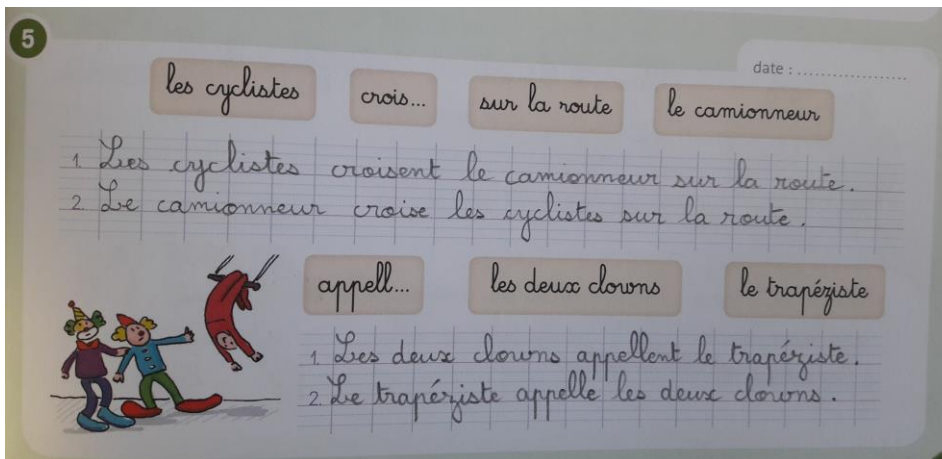 5
date : ...................
les cyclistes crois... sur la route le camionneur
1. Les cyclistes croisent le camionneur sur la route.
2. Le camionneur croise les cyclistes sur la route.
appell... les deux clowns le trapéziste
1 Les deux clowns appellent le trapéziste.
2. Le trapéziste appelle les deux clowns.